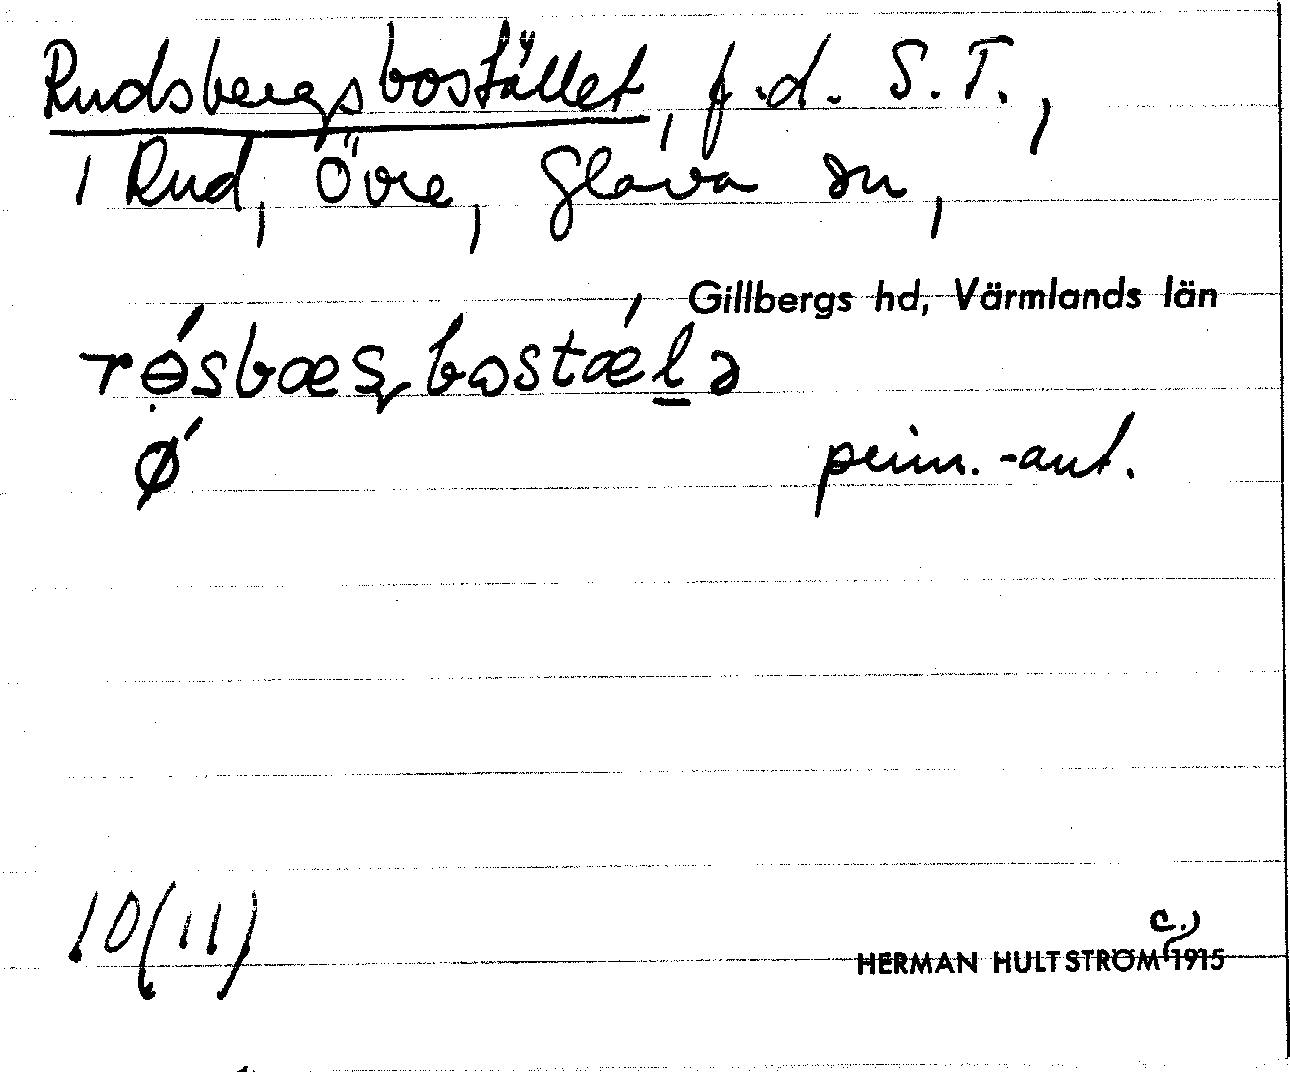 Rudsbergsbostället, f.d. S.T.,
i Rud, Övre, Glava sn,
Gillbergs hd, Värmlands län
rɵ́sbæʂbostǽlə
ǿ
prim.-ant.
10(11)
c.)
HERMAN HULTSTRÖM 1915